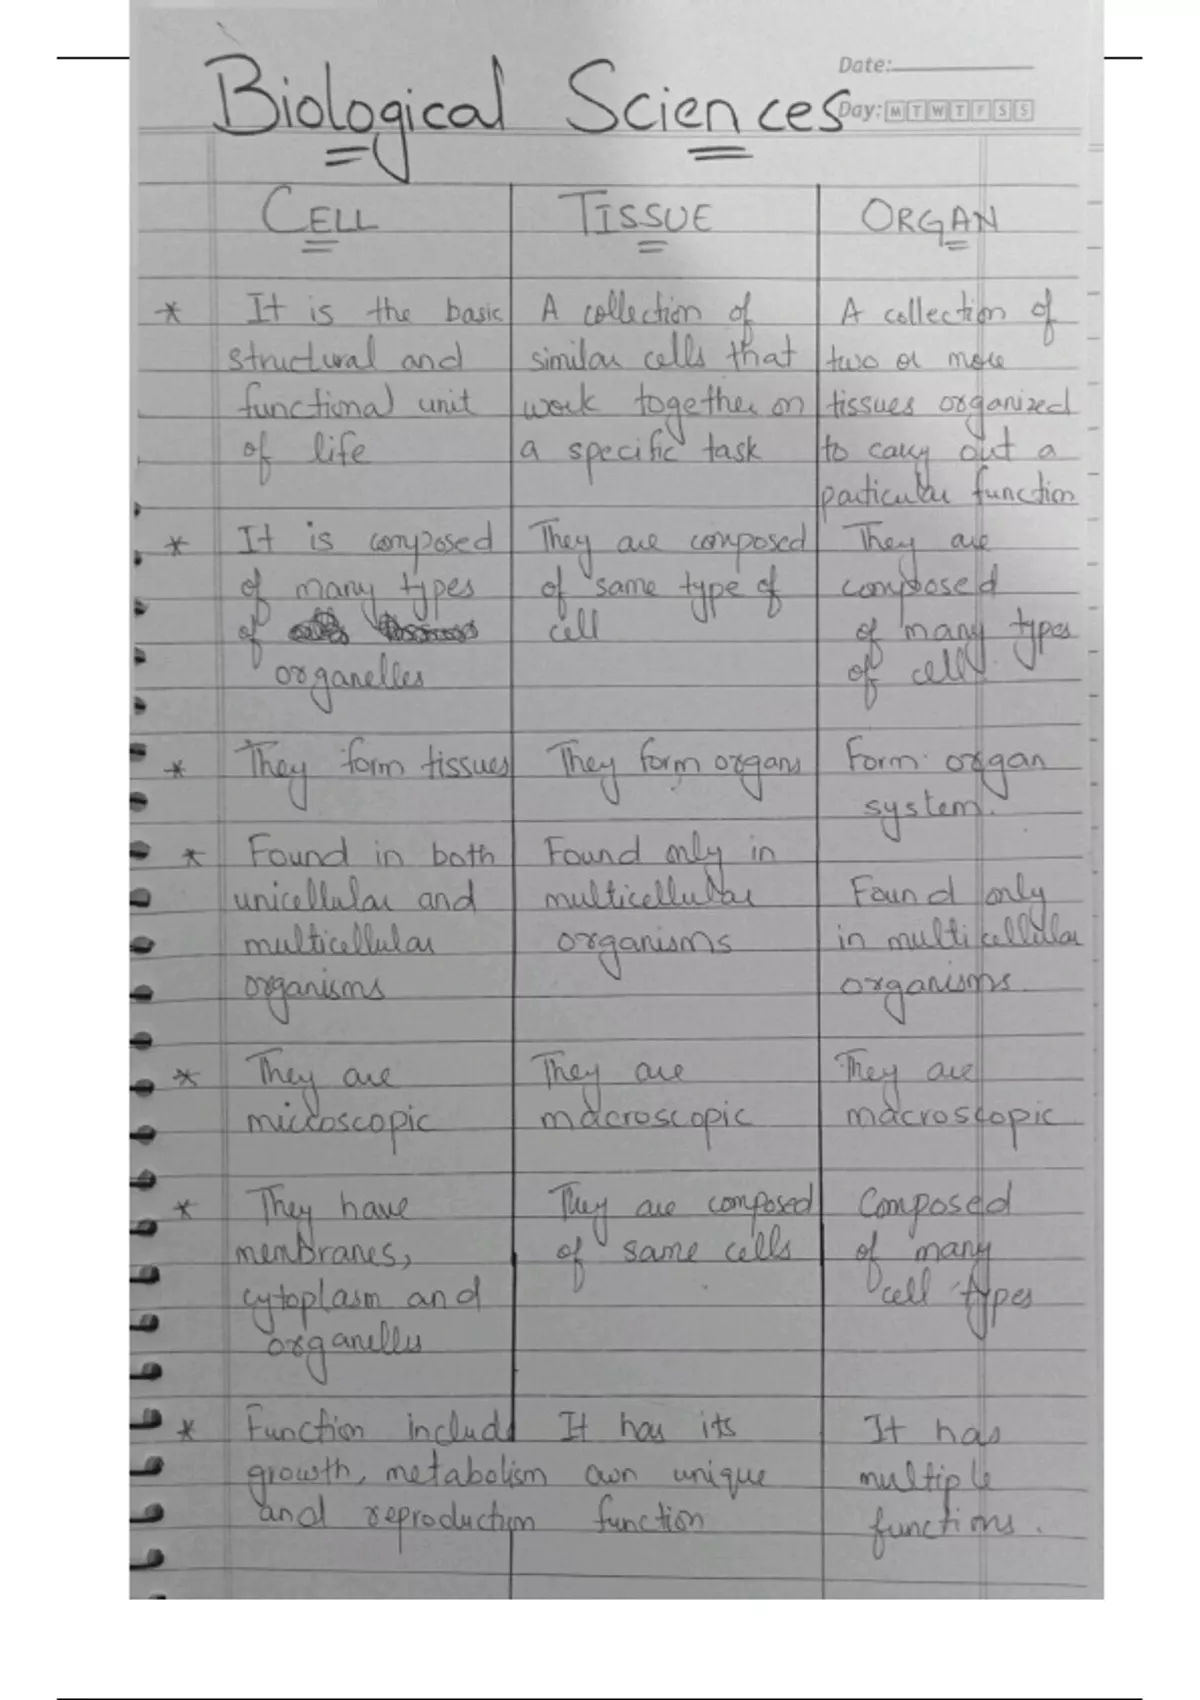 Date:
Biological Sciences
Day: M T W T F S S
CELL
TISSUE
ORGAN
* It is the basic
structural and
functional unit
of life
A collection of
similar cells that
work together on
a specific task
A collection of
two or more
tissues organized
to carry out a
particular function
* It is composed
of many types
of
organelles
They are composed
of same type of
cell
They are
composed
of many types
of cell.
* They form tissues
They form organs
Form organ
system.
* Found in both
unicellular and
multicellular
organisms
Found only in
multicellular
organisms
Found only
in multicellular
organisms.
* They are
microscopic
They are
macroscopic
They are
macroscopic
* They have
menbranes,
cytoplasm and
organelles
They are composed
of same cells
Composed
of many
cell types
* Function include
growth, metabolism
and reproduction
It has its
own unique
function
It has
multiple
functions.